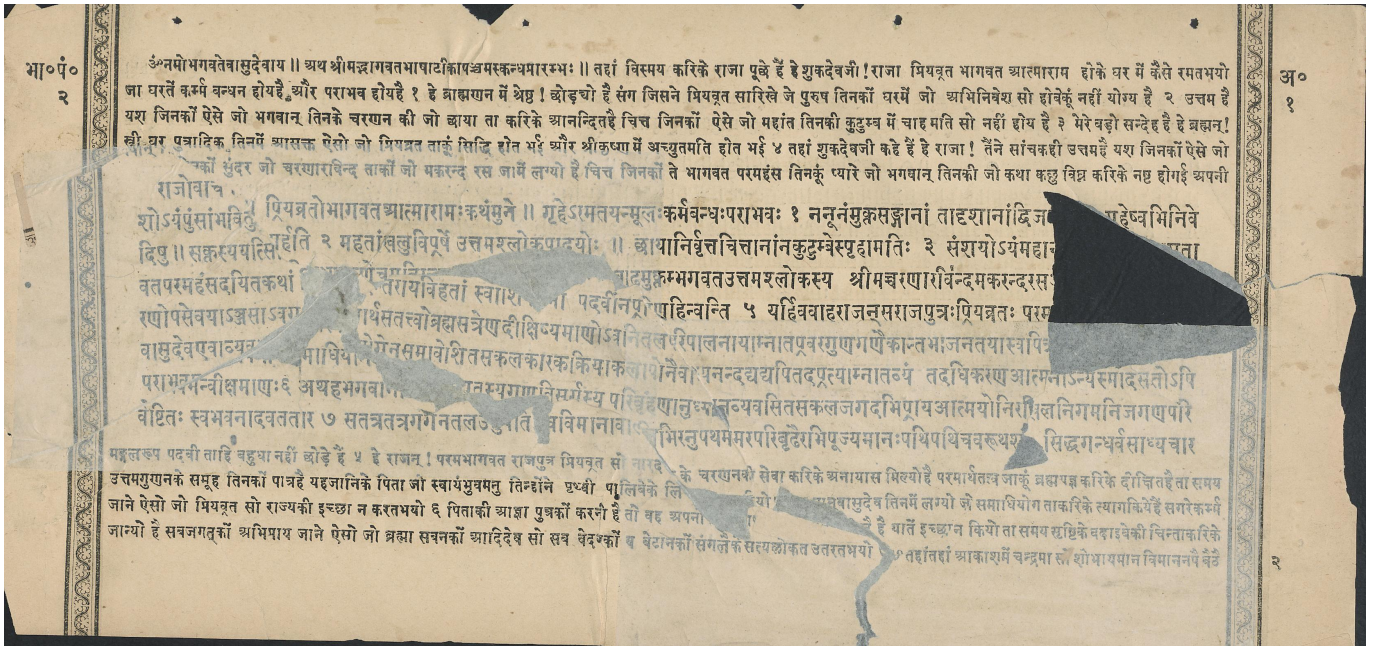 भा०पं०
२
अ०
१
ॐनमोभगवतेवासुदेवाय ॥ अथ श्रीमद्भागवतभाषाटीकापञ्चमस्कन्धप्रारम्भः ॥ तहां विस्मय करिके राजा पूछे हैं हे शुकदेवजी ! राजा प्रियव्रत भागवत आत्माराम होके घर में कैसे रमतभयो
जा घरतें कर्म्म बन्धन होयहै और पराभव होयहै १ हे ब्राह्मणन में श्रेष्ठ ! छोड़चो है संग जिसने प्रियव्रत सारिखे जे पुरुष तिनकों घरमें जो अभिनिवेश सो होवेकूं नहीं योग्य है २ उत्तम है
यश जिनकों ऐसे जो भगवान् तिनके चरणन की जो छाया ता करिके आनन्दितहै चित्त जिनकों ऐसे जो महांत तिनकी कुटुम्ब में चाहमति सो नहीं होय है ३ मेरे बड़ो सन्देह है हे ब्रह्मन् !
स्त्री घर पुत्रादिक तिनमें आसक्त ऐसो जो प्रियव्रत ताकूं सिद्धि होत भई और श्रीकृष्णमें अच्युतमति होत भई ४ तहां शुकदेवजी कहे हैं हे राजा ! तैंने सांचकही उत्तमहै यश जिनकों ऐसे जो
सुंदर जो चरणारविन्द ताकों जो मकरन्द रस जामें लग्यो है चित्त जिनकों ते भागवत परमहंस तिनकूं प्यारे जो भगवान् तिनकी जो कथा कछु विघ्न करिके नष्ट होगई अपनी
राजोवाच
प्रियव्रतोभागवतआत्मारामःकथंमुने ॥ गृहेऽरमतयन्मूलःकर्मबन्धःपराभवः १ ननूनंमुक्तसङ्गानां तादृशानांद्विज गृहेष्वभिनिवे
शोऽयंपुंसांभवितु र्हति २ महतांखलुविप्रर्षे उत्तमश्लोकपादयोः ॥ छायानिर्वृत्तचित्तानांनकुटुम्बेस्पृहामतिः ३ संशयोऽयंमहान्
दिषु ॥ सक्तस्ययत्सि बाढमुक्तम्भगवतउत्तमश्लोकस्य श्रीमच्चरणारविंन्दमकरन्दरस
वतपरमहंसदयितकथां तरायविहतां स्वां पदवींनप्रायेणहिन्वन्ति ५ यर्हिवावहराजन्सराजपुत्रःप्रियव्रतः परम
रणोपसेवयाऽञ्जसाऽवग र्थसतत्त्वोब्रह्मसत्रेणदीक्षिष्यमाणोऽवनितलपरिपालनायाम्नातप्रवरगुणगणैकान्तभाजनतयास्वपित्र
वासुदेवएवाव्यव माधियोगेनसमावेशितसकलकारकक्रियाकलापोनैवाभ्यनन्दद्यद्यपितदप्रत्याम्नातव्यं तदधिकरणआत्मनोऽन्यस्मादसतोऽपि
पराभवमन्वीक्षमाणः६ अथहभगवाना तस्यगुणविसर्गस्य परिबृंहणानुध्यानव्यवसितसकलजगदभिप्रायआत्मयोनिरखिलनिगमनिजगणपरि
वेष्टितः स्वभवनादवततार ७ सतत्रतत्रगगनतल विमाना भिरनुपथममरपरिवृढैरभिपूज्यमानःपथिपथिचवरूथशः सिद्धगन्धर्वसाध्यचार
मङ्गलरूप पदवी ताहि बहुधा नहीं छोड़े हैं ५ हे राजन् ! परमभागवत राजपुत्र प्रियव्रत सो नारद के चरणनकी सेवा करिके अनायास मिल्योहै परमार्थतत्व जाकूं ब्रह्मयज्ञ करिके दीक्षितहै ता समय
उत्तमगुणनके समूह तिनकों पात्रहै यहजानिके पिता जो स्वायंभुवमनु तिन्होंने पृथ्वी पालिबेके लि वासुदेव तिनमें लग्यो जो समाधियोग ताकरिके त्यागकियेहैं सगरेकर्म्म
जाने ऐसो जो प्रियव्रत सो राज्यकी इच्छा न करतभयो ६ पिताकी आज्ञा पुत्रकों करनी है तो वह अपनो है यातें इच्छान कियो ता समय सृष्टिके बढ़ाइवेकी चिन्ताकरिके
जान्यो है सबजगत्‌कों अभिप्राय जाने ऐसो जो ब्रह्मा सबनकों आदिदेव सो सब वेदनकों व बेटानकों संगलैके सत्यलोकतें उतरतभयो ७ तहांतहां आकाशमें चन्द्रमा सो शोभायमान विमाननपै बैठे
२